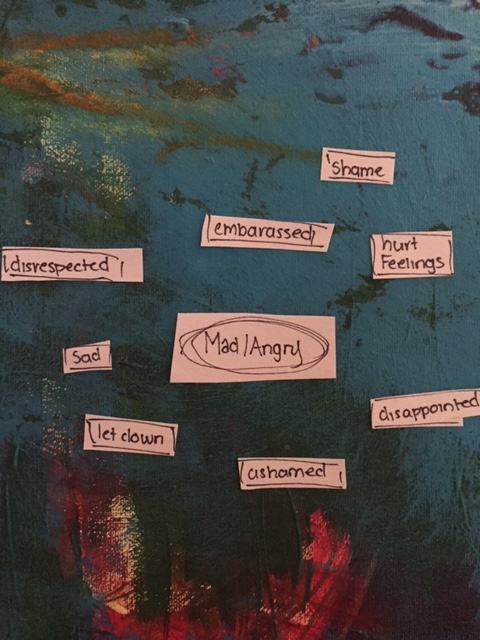 shame
embarassed
hurt
Feelings
disrespected
Mad/Angry
sad
disappointed
let down
ashamed